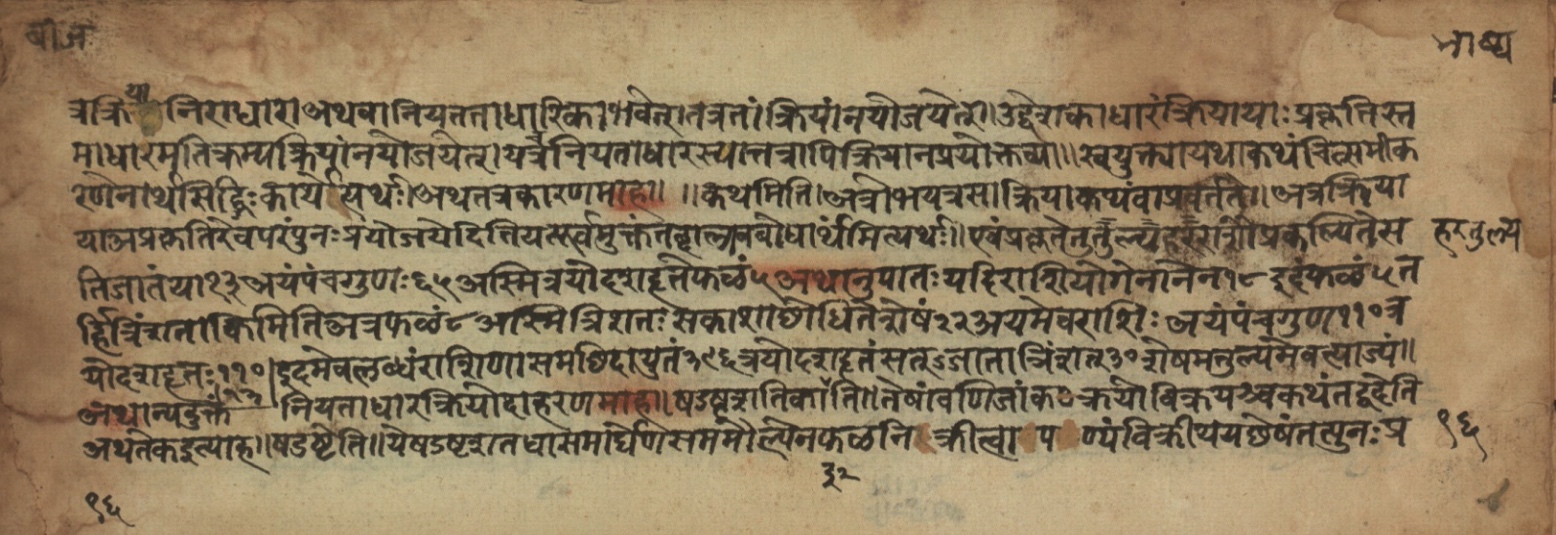 बीज
भाष्य
त्रक्रिया निराधारा अथवा नियतताधारिका भवेत् । तत्रतां क्रियां नयोजयेत् । उद्देशकाधारं क्रियायाः प्रकृतिस्त
माधारमतिक्रम्यक्रियां नयोजयेत् । यत्र नियताधारस्यात्तत्रापिक्रियानप्रयोक्तव्या ॥ स्वयुक्त्या यथाकथंचित्समीक
रणेनार्थसिद्धिः कार्येत्यर्थः । अथतत्रकारणमाह ॥ ॥ कथमिति । अत्रोभयत्रसा क्रिया कथंवाप्रवर्तते ॥ अत्रक्रिया
याअप्रकृतिरेवपरंपुनः प्रयोजयेदिति यत्सर्वमुक्तंतद्बालावबोधार्थमित्यर्थः ॥ एवंप्रकृतेतु तुल्यहरराशौ प्रकल्पितेस
हरतुल्य
तिजातंया १३ अयंपंचगुणः ६५ अस्मित्रयोदशहृतेफळं ५ अथानुपातः यदिराशियोगेनानेन १८ इदंफळं ५ त
र्हित्रिंशताकिमितिअत्रफळं ८ अस्मिंत्रिशतः सकाशाछोधितेशेषं २२ अयमेवराशिः अयंपंचगुण ११० त्र
योदशहृतः ११० इदमेवलब्धंराशिणासमशिदायुतं ३९६ त्रयोदशहृतंसत् जाता त्रिंशत् ३० शेषमतुल्यमेवत्याज्यं ॥
अथान्यदुक्तं नियताधारक्रियोदाहरणमाह । षडष्टशतिकाइति ॥ तेषांवणिजांकः क्रयोविक्रयश्चकथंतद्वदेति
अथतेकइत्याह ॥ षडष्टेति ॥ येषडष्टशतधासमर्घेणसममौल्येनफळनि क्रीत्वा प ण्यंविक्रीयेयशेषंतत्पुनः प्र
९६
३२
९६